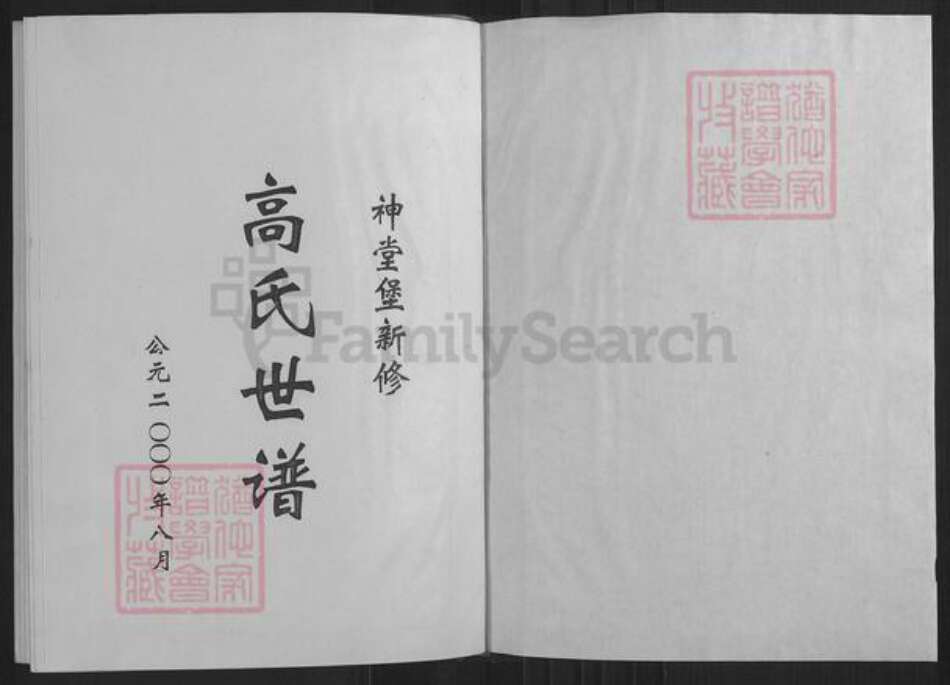 神堂堡新修
高氏世谱
公元二〇〇〇年八月
猶他家
譜學會
收藏
猶他家
譜學會
收藏
FamilySearch